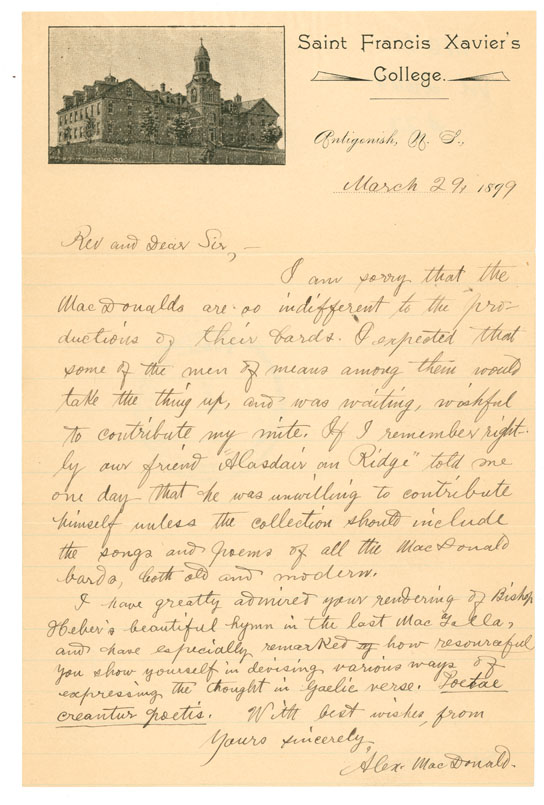 Saint Francis Xavier's
College.
Antigonish, N. S.,
March 29, 1899
Rev and Dear Sir, —
I am sorry that the
MacDonalds are so indifferent to the pro-
ductions of their bards. I expected that
some of the men of means among them would
take the thing up, and was waiting, wishful
to contribute my mite. If I remember right-
ly our friend "Alasdair an Ridge" told me
one day that he was unwilling to contribute
himself unless the collection should include
the songs and poems of all the MacDonald
bards, both old and modern.
I have greatly admired your rendering of Bishop
Heber's beautiful hymn in the last Mac Talla,
and have especially remarked how resourceful
you show yourself in devising various ways of
expressing the thought in Gaelic verse. Poetae
creantur poetis. With best wishes, from
Yours sincerely
Alex. MacDonald.